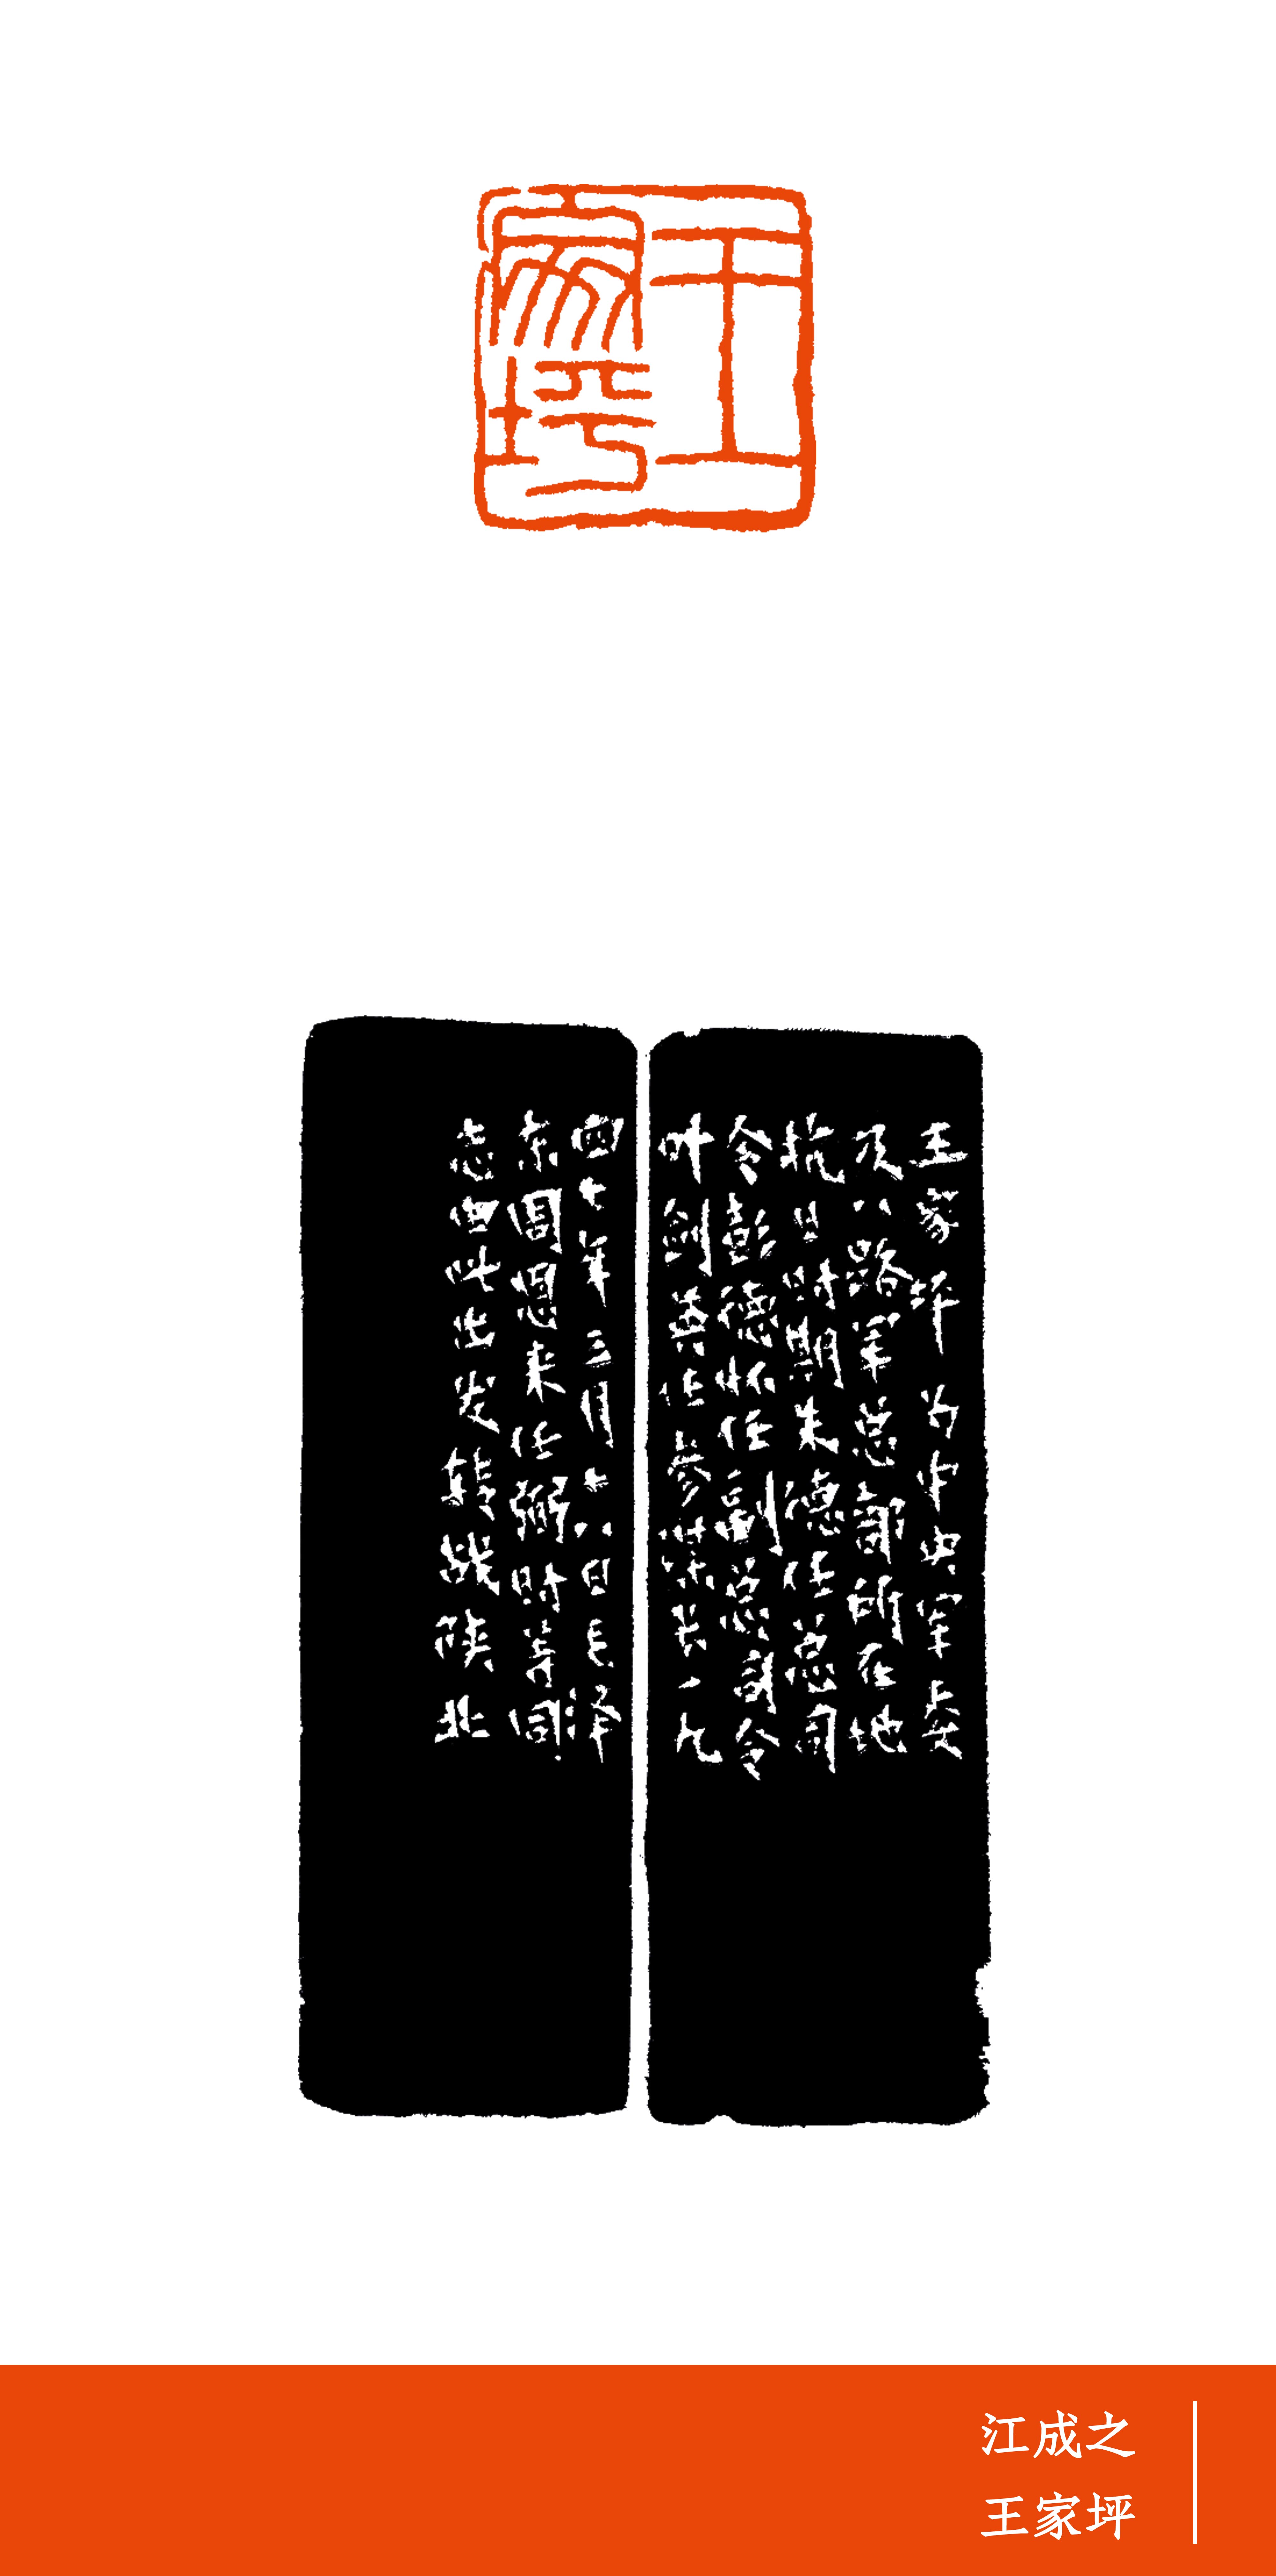 王家坪
王家坪为中央军委
及八路军总部所在地
抗日时期朱德任总司
令彭德怀任副总司令
叶剑英任参谋长一九
四七年三月十八日毛泽
东周恩来任弼时等同
志由此出发转战陕北
江成之
王家坪